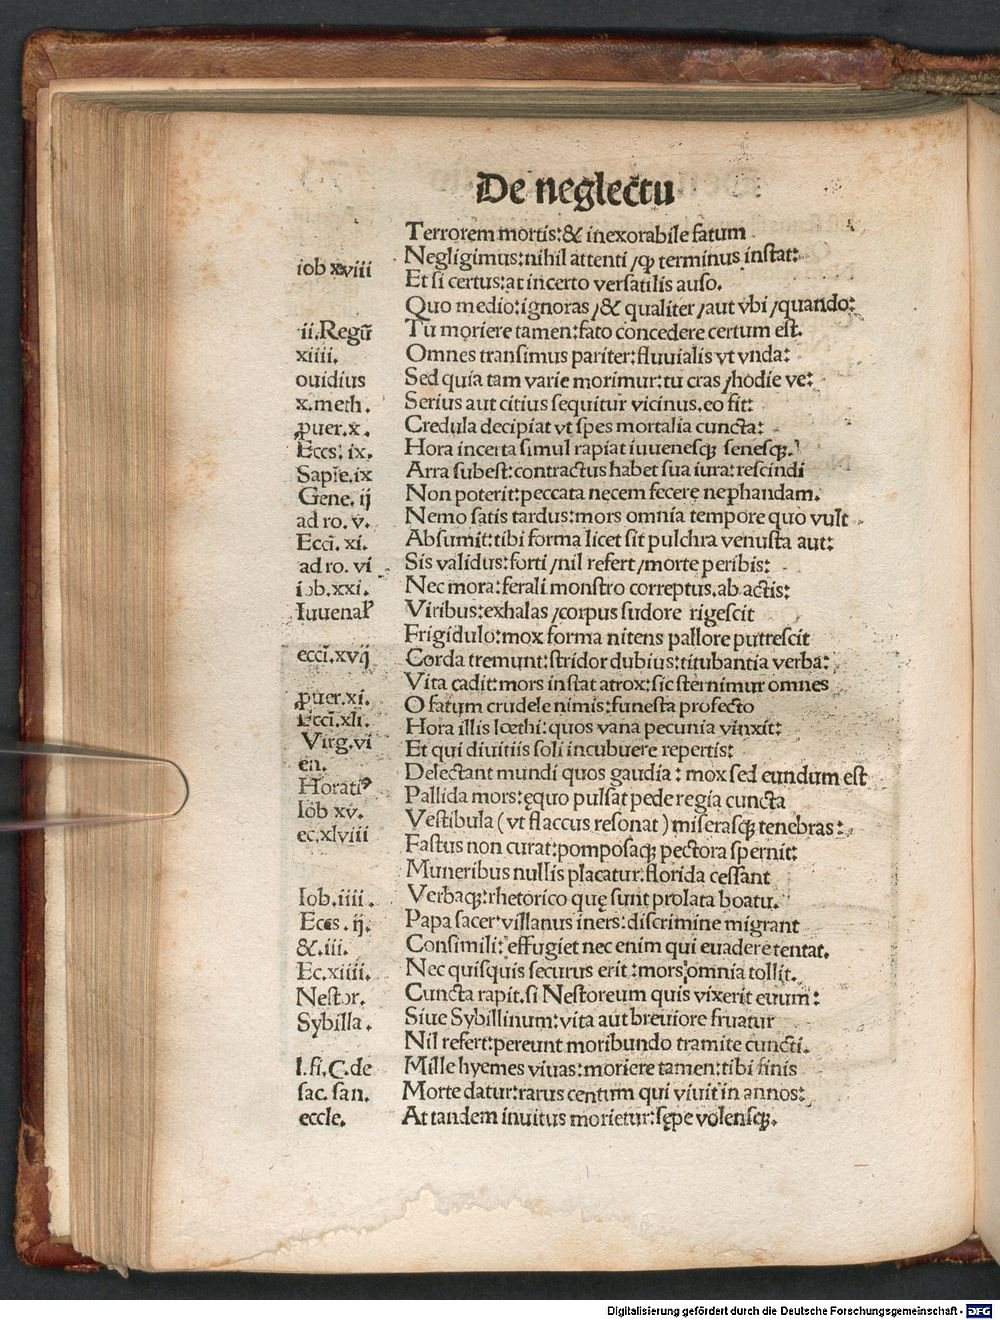 De neglectu
Terrorem mortis:& inexorabile fatum
Negligimus:nihil attenti /qp terminus instat:
iob xviii
Et si certus:at incerto versatilis auso.
Quo medio:ignoras /& qualiter /aut vbi /quando:
ii.Regū Tu moriere tamen:fato concedere certum est.
xiiii. Omnes transimus pariter:fluuialis vt vnda:
ouidius Sed quia tam varie morimur:tu cras /hodie ve:
x.meth. Serius aut citius sequitur vicinus.eo fit:
ꝓuer.x. Credula decipiat vt spes mortalia cuncta:
Eccs. ix. Hora incerta simul rapiat iuuenesqȝ senesqȝ.
Sapie.ix Arra subest:contractus habet sua iura:rescindi
Gene. ij Non poterit:peccata necem fecere nephandam.
ad ro. v. Nemo satis tardus:mors omnia tempore quo vult
Ecci. xi. Absumit:tibi forma licet sit pulchra venusta aut:
ad ro. vi Sis validus:forti /nil refert /morte peribis:
iob.xxi. Nec mora:ferali monstro correptus.ab actis:
Iuuenał Viribus:exhalas /corpus sudore rigescit
Frigidulo:mox forma nitens pallore putrescit
ecci.xvij Corda tremunt:stridor dubius:titubantia verba:
Vita cadit:mors instat atrox:sic sternimur omnes
ꝓuer.xi. O fatum crudele nimis:funesta profecto
Ecci.xli. Hora illis lœthi:quos vana pecunia vinxit:
Virg.vi Et qui diuitiis soli incubuere repertis:
en. Delectant mundi quos gaudia: mox sed eundum est
Horatiꝰ Pallida mors:ęquo pulsat pede regia cuncta
Iob xv. Vestibula (vt flaccus resonat) miserasqȝ tenebras:
ec.xlviii Fastus non curat:pomposaqȝ pectora spernit:
Muneribus nullis placatur:florida cessant
Iob.iiii. Verbaqȝ:rhetorico quę sunt prolata boatu.
Eccs.ij. Papa sacer villanus iners:discrimine migrant
&.iii. Consimili:effugiet nec enim qui euadere tentat.
Ec.xiiii. Nec quisquis securus erit:mors omnia tollit.
Nestor. Cuncta rapit.si Nestoreum quis vixerit euum:
Sybilla. Siue Sybillinum:vita aut breuiore fruatur
Nil refert:pereunt moribundo tramite cuncti.
l.fi.C.de Mille hyemes viuas:moriere tamen:tibi finis
sac. san. Morte datur:rarus centum qui viuit in annos:
eccle. At tandem inuitus morietur:sępe volensqȝ.
Digitalisierung gefördert durch die Deutsche Forschungsgemeinschaft - DFG